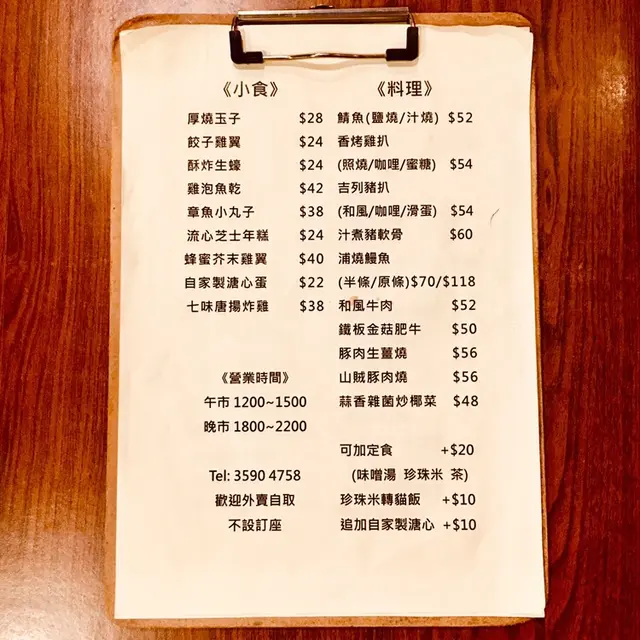 《小食》
厚燒玉子 $28
餃子雞翼 $24
酥炸生蠔 $24
雞泡魚乾 $42
章魚小丸子 $38
流心芝士年糕 $24
蜂蜜芥末雞翼 $40
自家製溏心蛋 $22
七味唐揚炸雞 $38
《營業時間》
午市 1200~1500
晚市 1800~2200
Tel: 3590 4758
歡迎外賣自取
不設訂座
《料理》
鯖魚(鹽燒/汁燒) $52
香烤雞扒
(照燒/咖哩/蜜糖) $54
吉列豬扒
(和風/咖哩/滑蛋) $54
汁煮豬軟骨 $60
浦燒鰻魚
(半條/原條)$70/$118
和風牛肉 $52
鐵板金菇肥牛 $50
豚肉生薑燒 $56
山賊豚肉燒 $56
蒜香雜菌炒椰菜 $48
可加定食 +$20
(味噌湯 珍珠米 茶)
珍珠米轉貓飯 +$10
追加自家製溏心 +$10